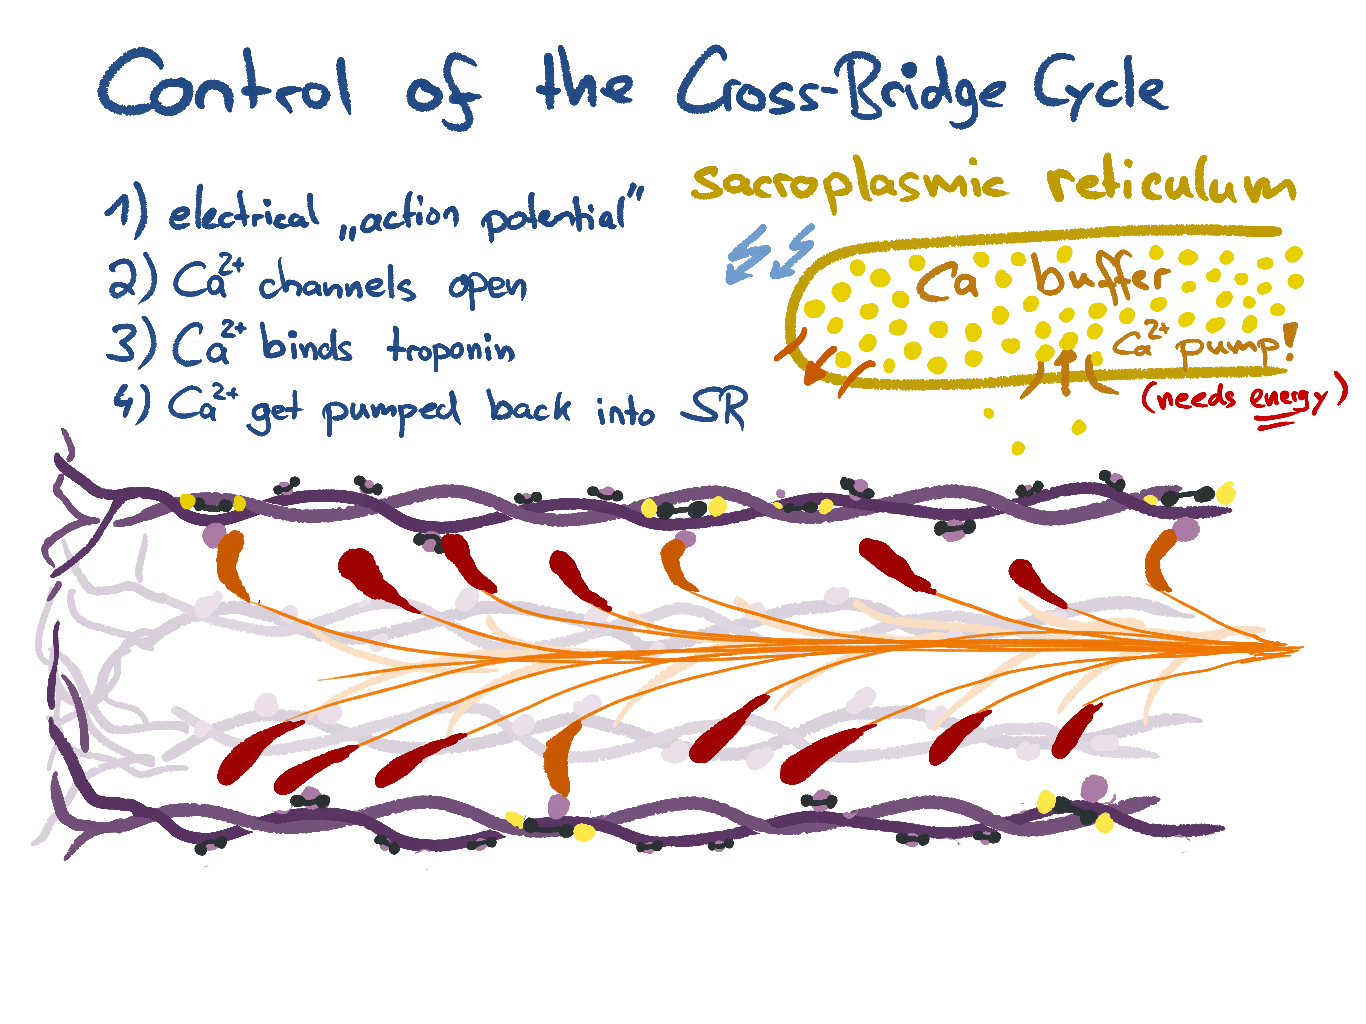 Control of the Cross-Bridge Cycle
1) electrical „action potential”
2) Ca²⁺ channels open
3) Ca²⁺ binds troponin
4) Ca²⁺ get pumped back into SR
sacroplasmic reticulum
Ca buffer
Ca²⁺ pump!
(needs energy)